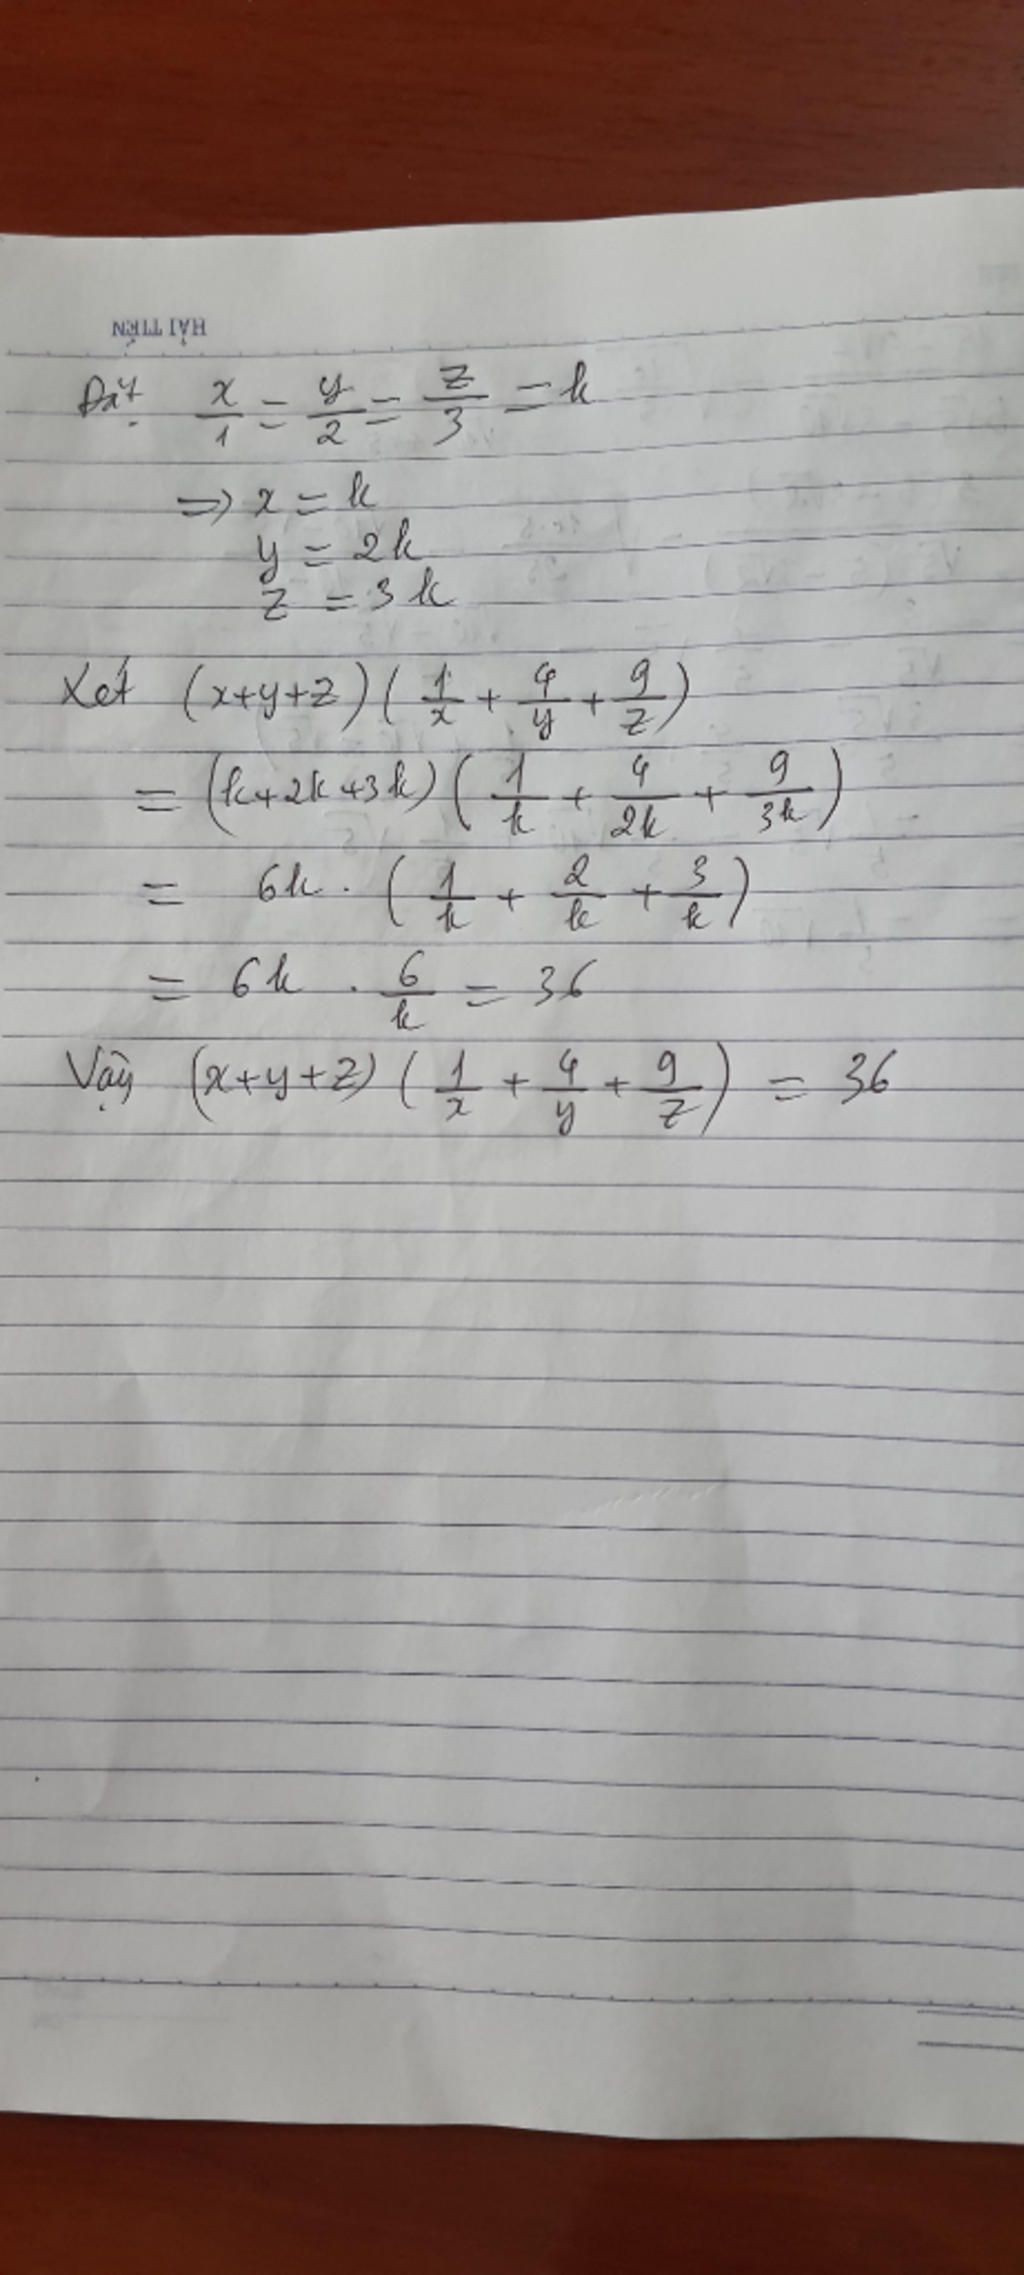 HẢI TIẾN
Đặt x/1 = y/2 = z/3 = k
=> x = k
y = 2k
z = 3k
Xét (x+y+z)(1/x + 4/y + 9/z)
= (k+2k+3k)(1/k + 4/2k + 9/3k)
= 6k . (1/k + 2/k + 3/k)
= 6k . 6/k = 36
Vậy (x+y+z)(1/x + 4/y + 9/z) = 36